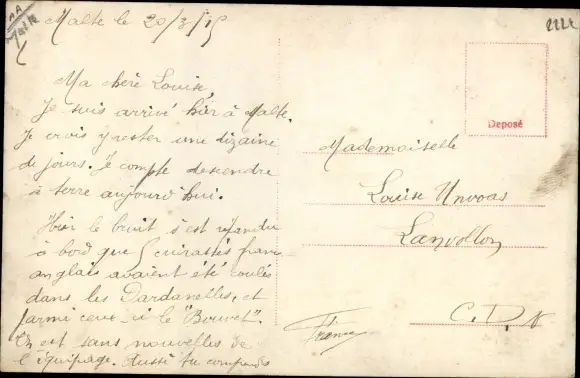 AA
Malte
Malte le 20/3/15
Ma chère Louise,
Je suis arrivé hier à Malte.
Je crois y rester une dizaine
de jours. Je compte descendre
à terre aujourd'hui.
Hier le bruit s'est répandu
à bord que 5 cuirassés franco
anglais avaient été coulés
dans les Dardanelles, et
parmi ceux-ci le "Bouvet".
On est sans nouvelles de
l'équipage. Aussi tu comprends
Deposé
Mademoiselle
Louise Unvoas
Lanvollon
C. D. N
France